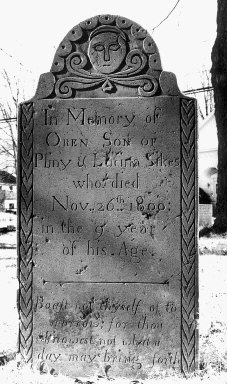 In Memory of
OREN SON OF
Pliny & Lucina Sikes
who died
Nov. 26th 1800:
in the 9 year
of his Age.
Boast not thyself of to
morrow: for thou
knowest not what a
day may bring forth